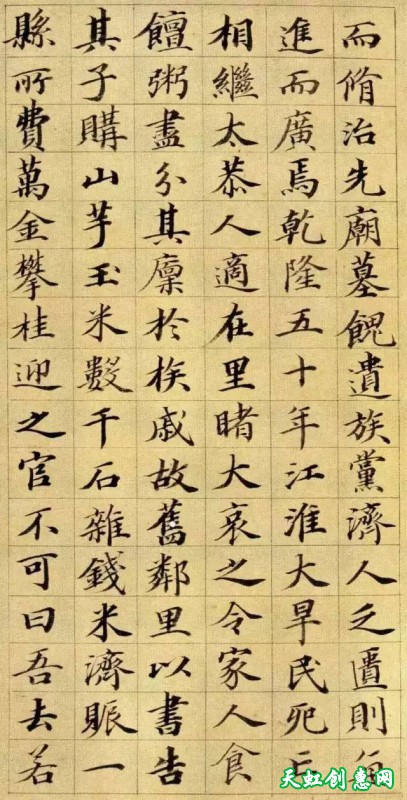 而脩治先廟墓餽遺族黨濟人乏匱則
進而廣焉乾隆五十年江淮大旱民死亡
相繼太恭人適在里睹大哀之令家人食
饘粥盡分其廩於族戚故舊鄰里以書告
其子購山芋玉米數千石雜錢米濟賑一
縣所費萬金攀桂迎之官不可曰吾去若
天虹创惠网